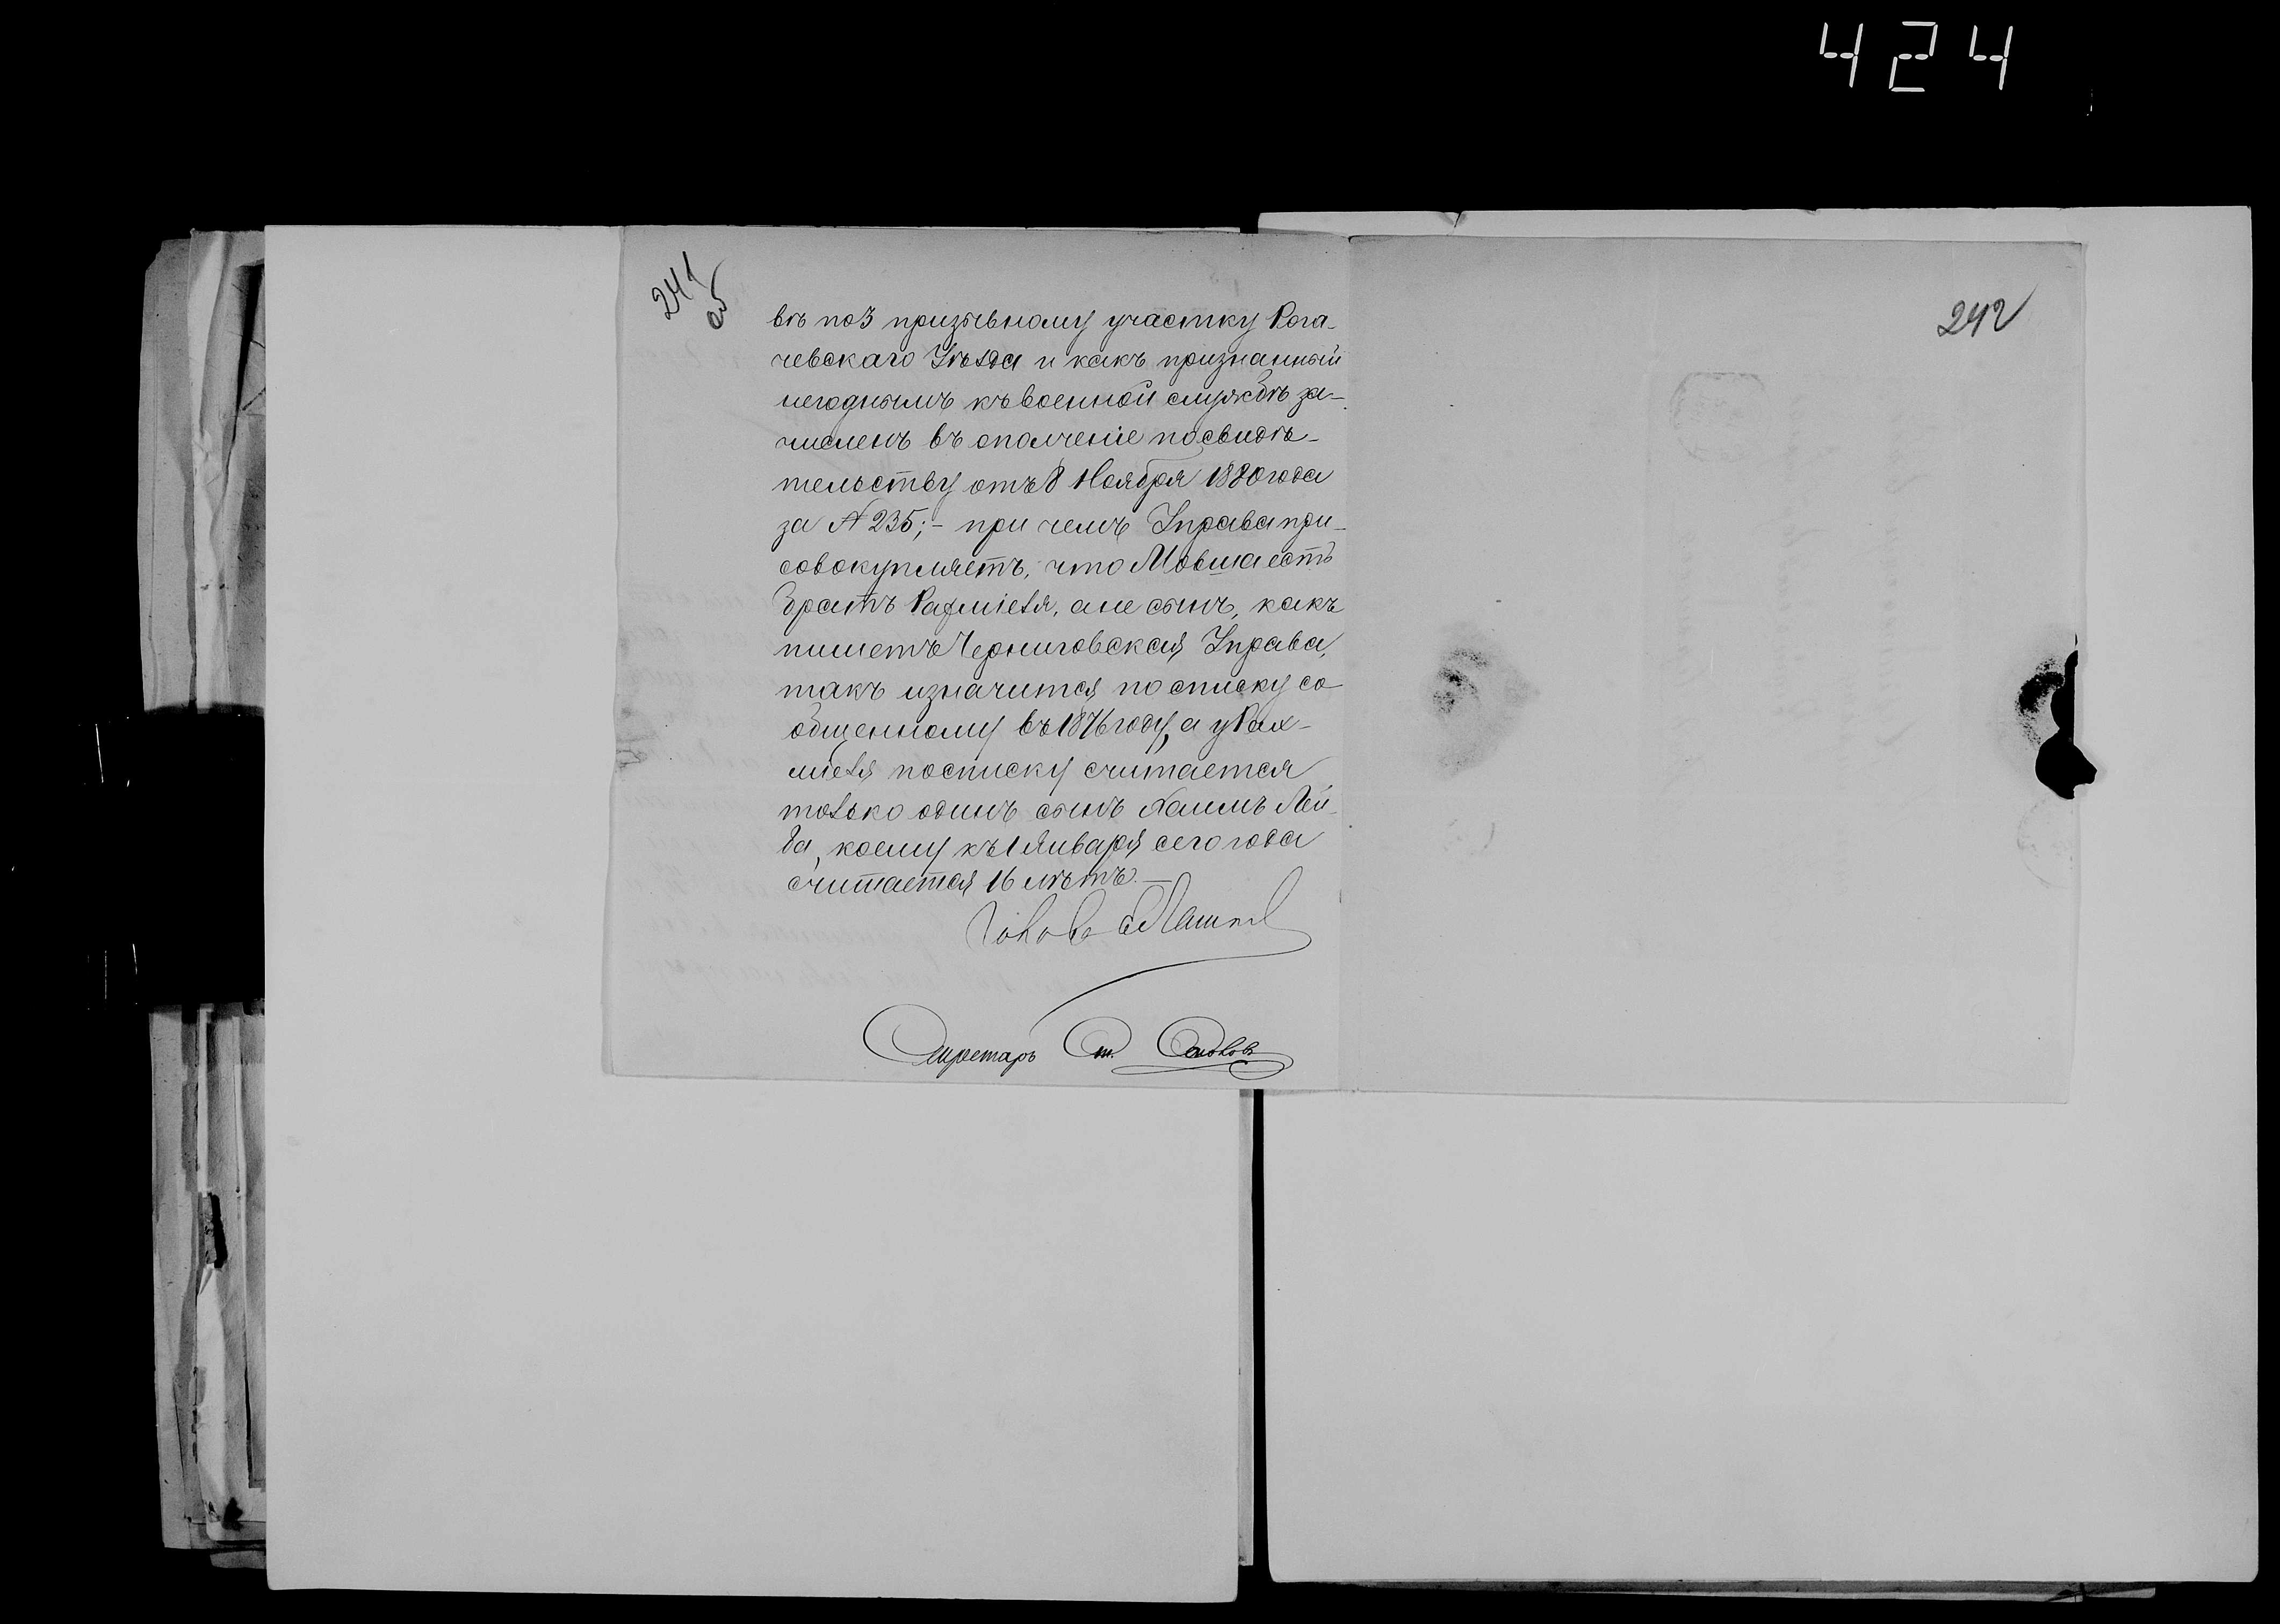 424
241
об
242
вѣ по 3 призывному участку Рога-
чевскаго Уѣзда и какъ признанный
негоднымъ къ военной службѣ за-
численъ въ ополченіе по свидѣ-
тельству отъ 8 Ноября 1880 года
за № 235;- при чемъ Управа при-
совокупляетъ, что Мовша есть
братъ Рахміеля, а не сынъ, какъ
пишетъ Черниговская Управа,
такъ и значится по списку со
общенному въ 1876 году, а у Рах-
міеля по списку считается
только одинъ сынъ Хаимъ Лей-
ба, коему къ 1 Января сего года
считается 16 лѣтъ.-
Голова
Секретарь Ст.